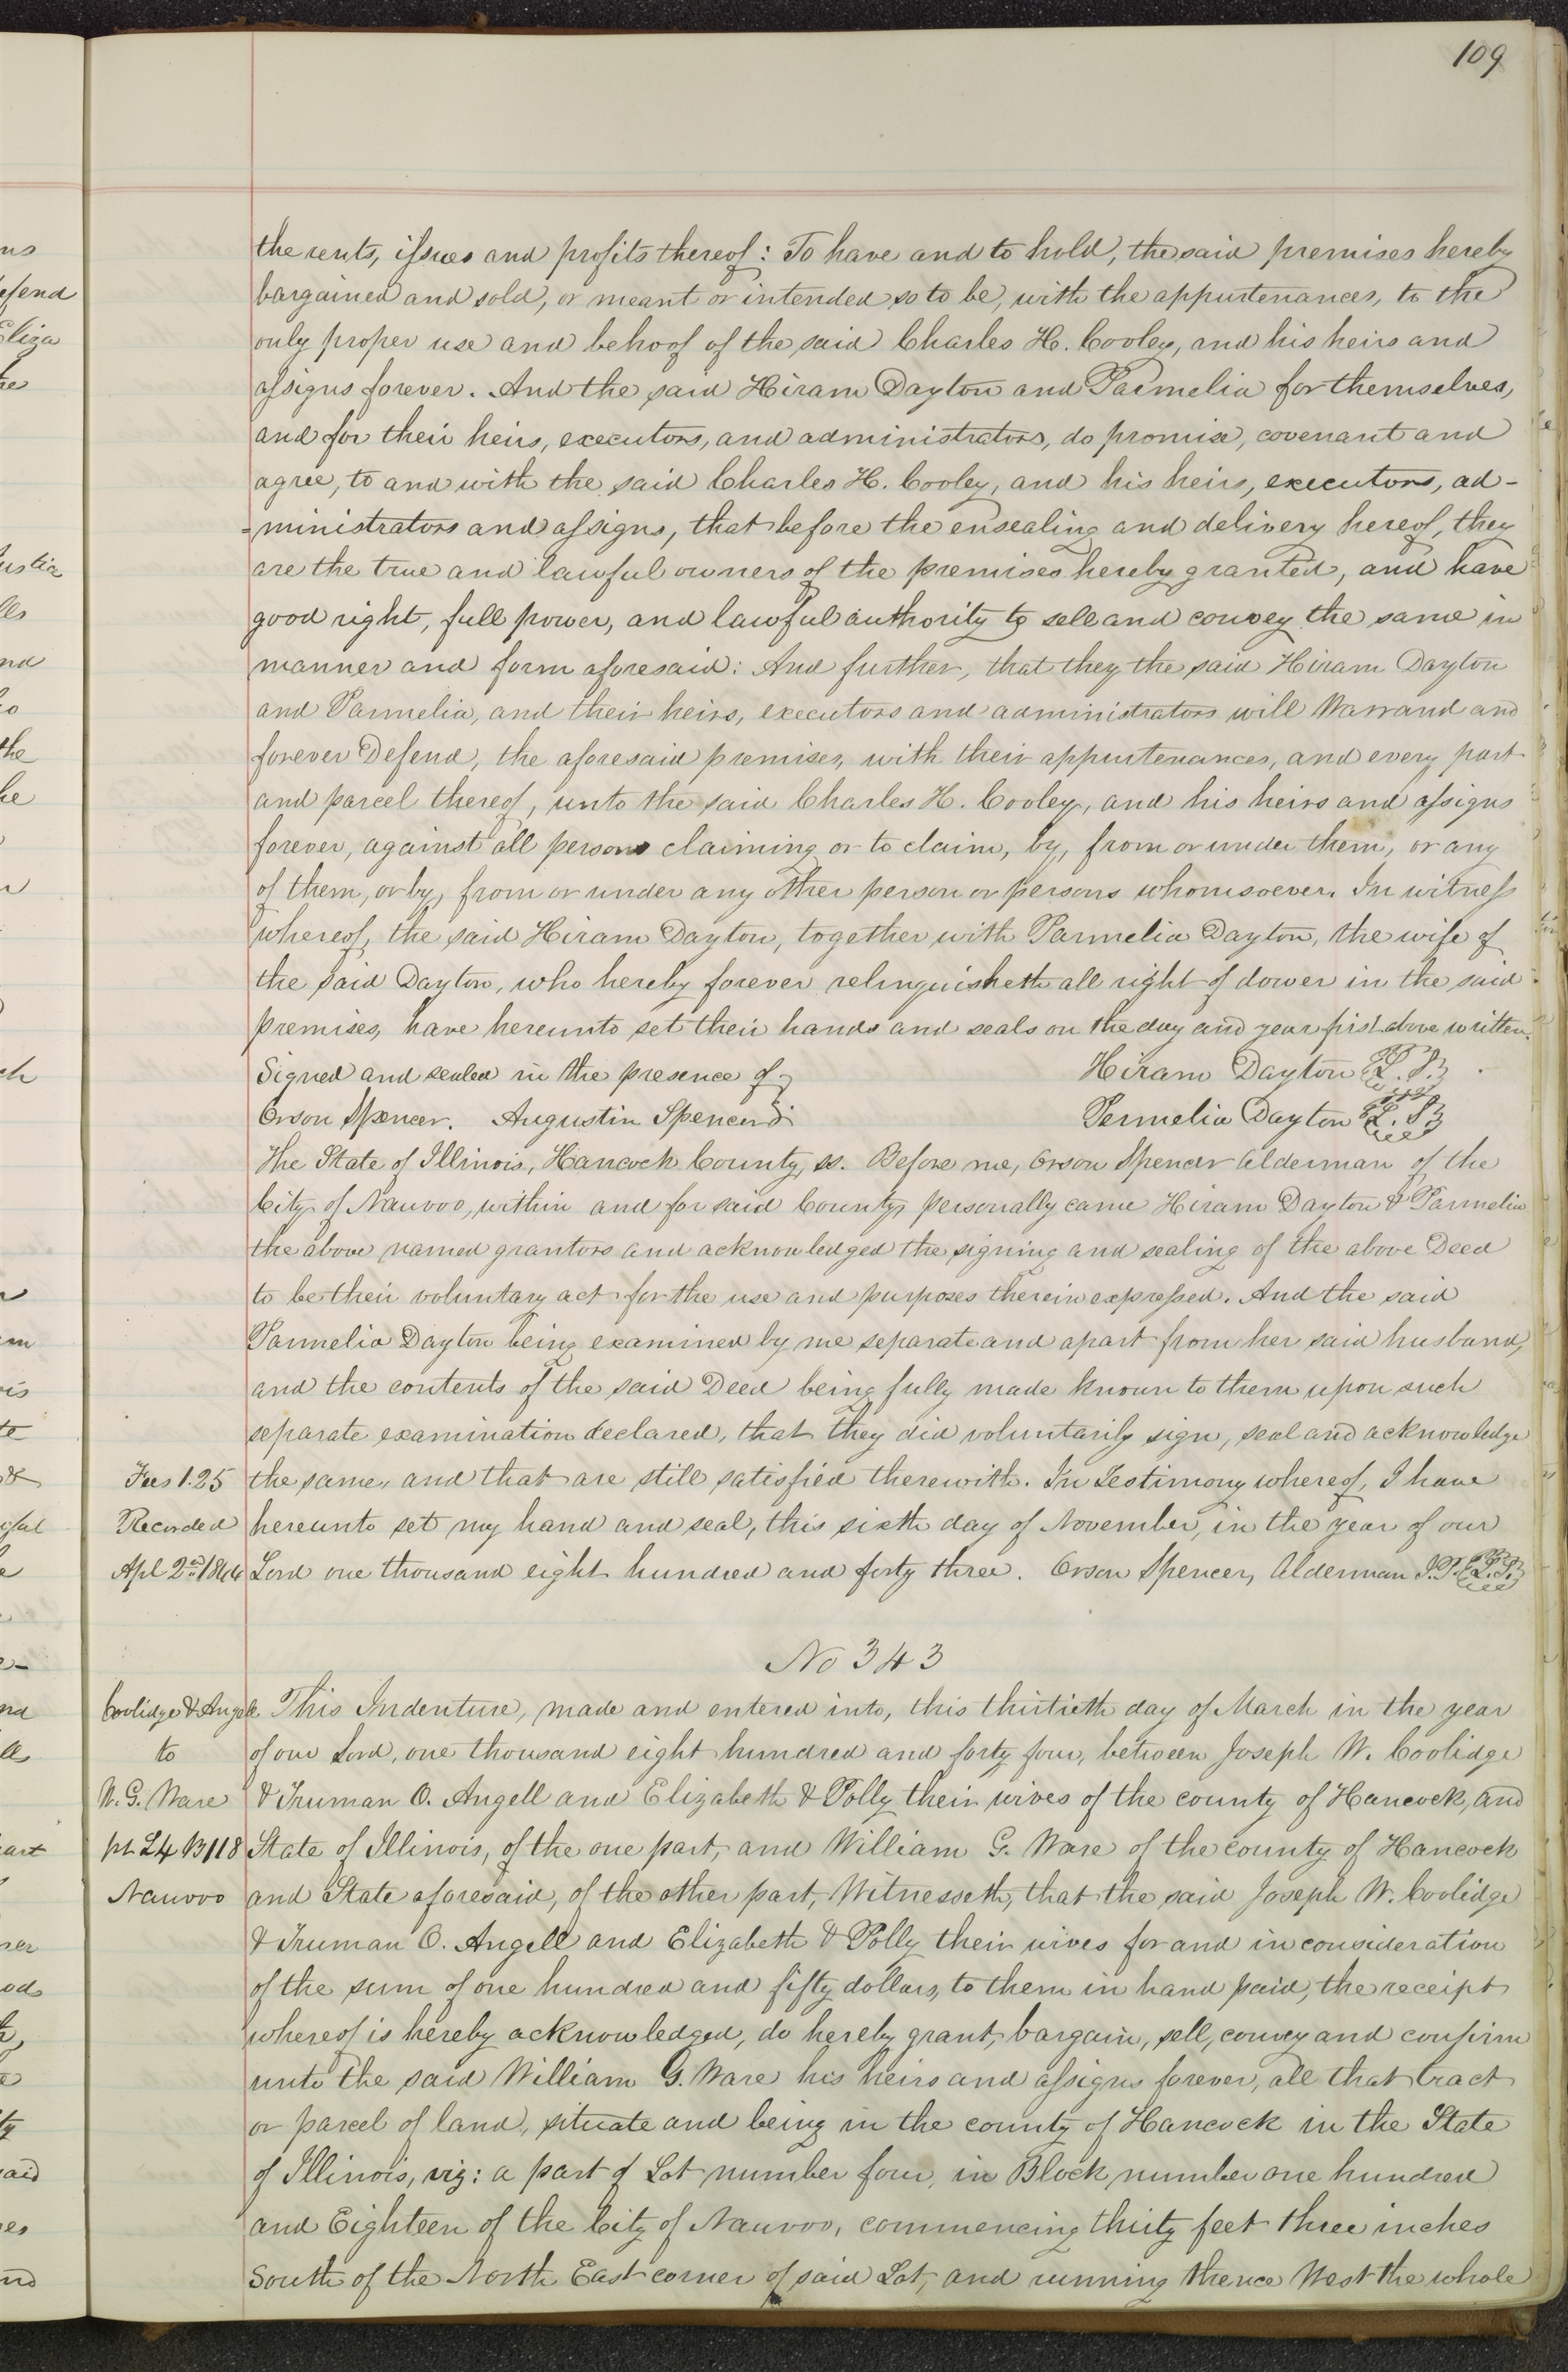 109
the rents, issues and profits thereof: To have and to hold, the said premises hereby
bargained and sold, or meant or intended so to be, with the appurtenances, to the
only proper use and behoof of the said Charles H. Cooley, and his heirs and
assigns forever. And the said Hiram Dayton and Parmelia for themselves,
and for their heirs, executors, and administrators, do promise, covenant and
agree, to and with the said Charles H. Cooley, and his heirs, executors, ad-
=ministrators and assigns, that before the ensealing and delivery hereof, they
are the true and lawful owners of the premises hereby granted, and have
good right, full power, and lawful authority to sell and convey the same in
manner and form aforesaid: And further, that they the said Hiram Dayton
and Parmelia, and their heirs, executors and administrators will Warrand and
forever Defend, the aforesaid premises, with their appurtenances, and every part
and parcel thereof, unto the said Charles H. Cooley, and his heirs and assigns
forever, against all persons claiming or to claim, by, from or under them, or any
of them, or by, from or under any other person or persons whomsoever. In witness
whereof, the said Hiram Dayton, together with Parmelia Dayton, the wife of
the said Dayton, who hereby forever relinquisheth all right of dower in the said
premises, have hereunto set their hands and seals on the day and year first above written.
Signed and sealed in the presence of Hiram Dayton L.S.
Orson Spencer. Augustin Spencer Permelia Dayton L.S.
The State of Illinois, Hancock County, ss. Before me, Orson Spencer Alderman of the
City of Nauvoo, within and for said County, personally came Hiram Dayton & Parmelia
the above named grantors and acknowledged the signing and sealing of the above Deed
to be their voluntary act for the use and purposes therein expressed. And the said
Parmelia Dayton being examined by me separate and apart from her said husband,
and the contents of the said Deed being fully made known to them upon such
separate examination declared, that they did voluntarily sign, seal and acknowledge
Fees 1.25 the same, and that are still satisfied therewith. In Testimony whereof, I have
Recorded hereunto set my hand and seal, this sixth day of November, in the year of our
Apl 2nd 1844 Lord one thousand eight hundred and forty three. Orson Spencer, Alderman J.P. L.S.
No 343
Coolidge & Angell This Indenture, made and entered into, this thirtieth day of March in the year
to of our Lord, one thousand eight hundred and forty four, between Joseph W. Coolidge
W. G. Ware & Truman O. Angell and Elizabeth & Polly their wives of the county of Hancock, and
pt L4 B118 State of Illinois, of the one part, and William G. Ware of the county of Hancock
Nauvoo and State aforesaid, of the other part, Witnesseth, that the said Joseph W. Coolidge
& Truman O. Angell and Elizabeth & Polly their wives for and in consideration
of the sum of one hundred and fifty dollars, to them in hand paid, the receipt
whereof is hereby acknowledged, do hereby grant, bargain, sell, convey and confirm
unto the said William G. Ware his heirs and assigns forever, all that tract
or parcel of land, situate and being in the county of Hancock in the State
of Illinois, viz: a part of Lot number four, in Block number one hundred
and Eighteen of the City of Nauvoo, commencing thirty feet three inches
South of the North East corner of said Lot, and running thence West the whole